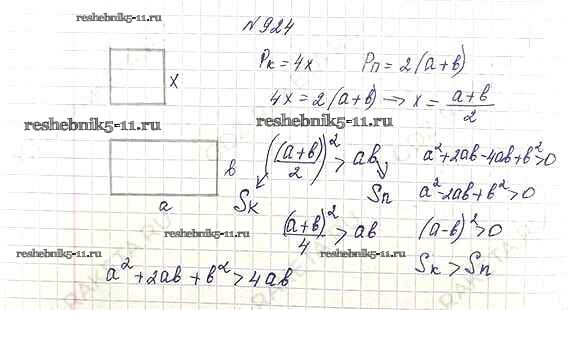 reshebnik5-11.ru
N924
Pк = 4x Pп = 2(a+b)
x
4x = 2(a+b) → x = (a+b)/2
reshebnik5-11.ru
reshebnik5-11.ru
((a+b)/2)² > ab a²+2ab-4ab+b²>0
b
Sк Sп a²-2ab+b²>0
a
(a+b)²/4 > ab (a-b)²>0
reshebnik5-11.ru
reshebnik5-11.ru
reshebnik5-11.ru
Sк > Sп
a²+2ab+b²>4ab